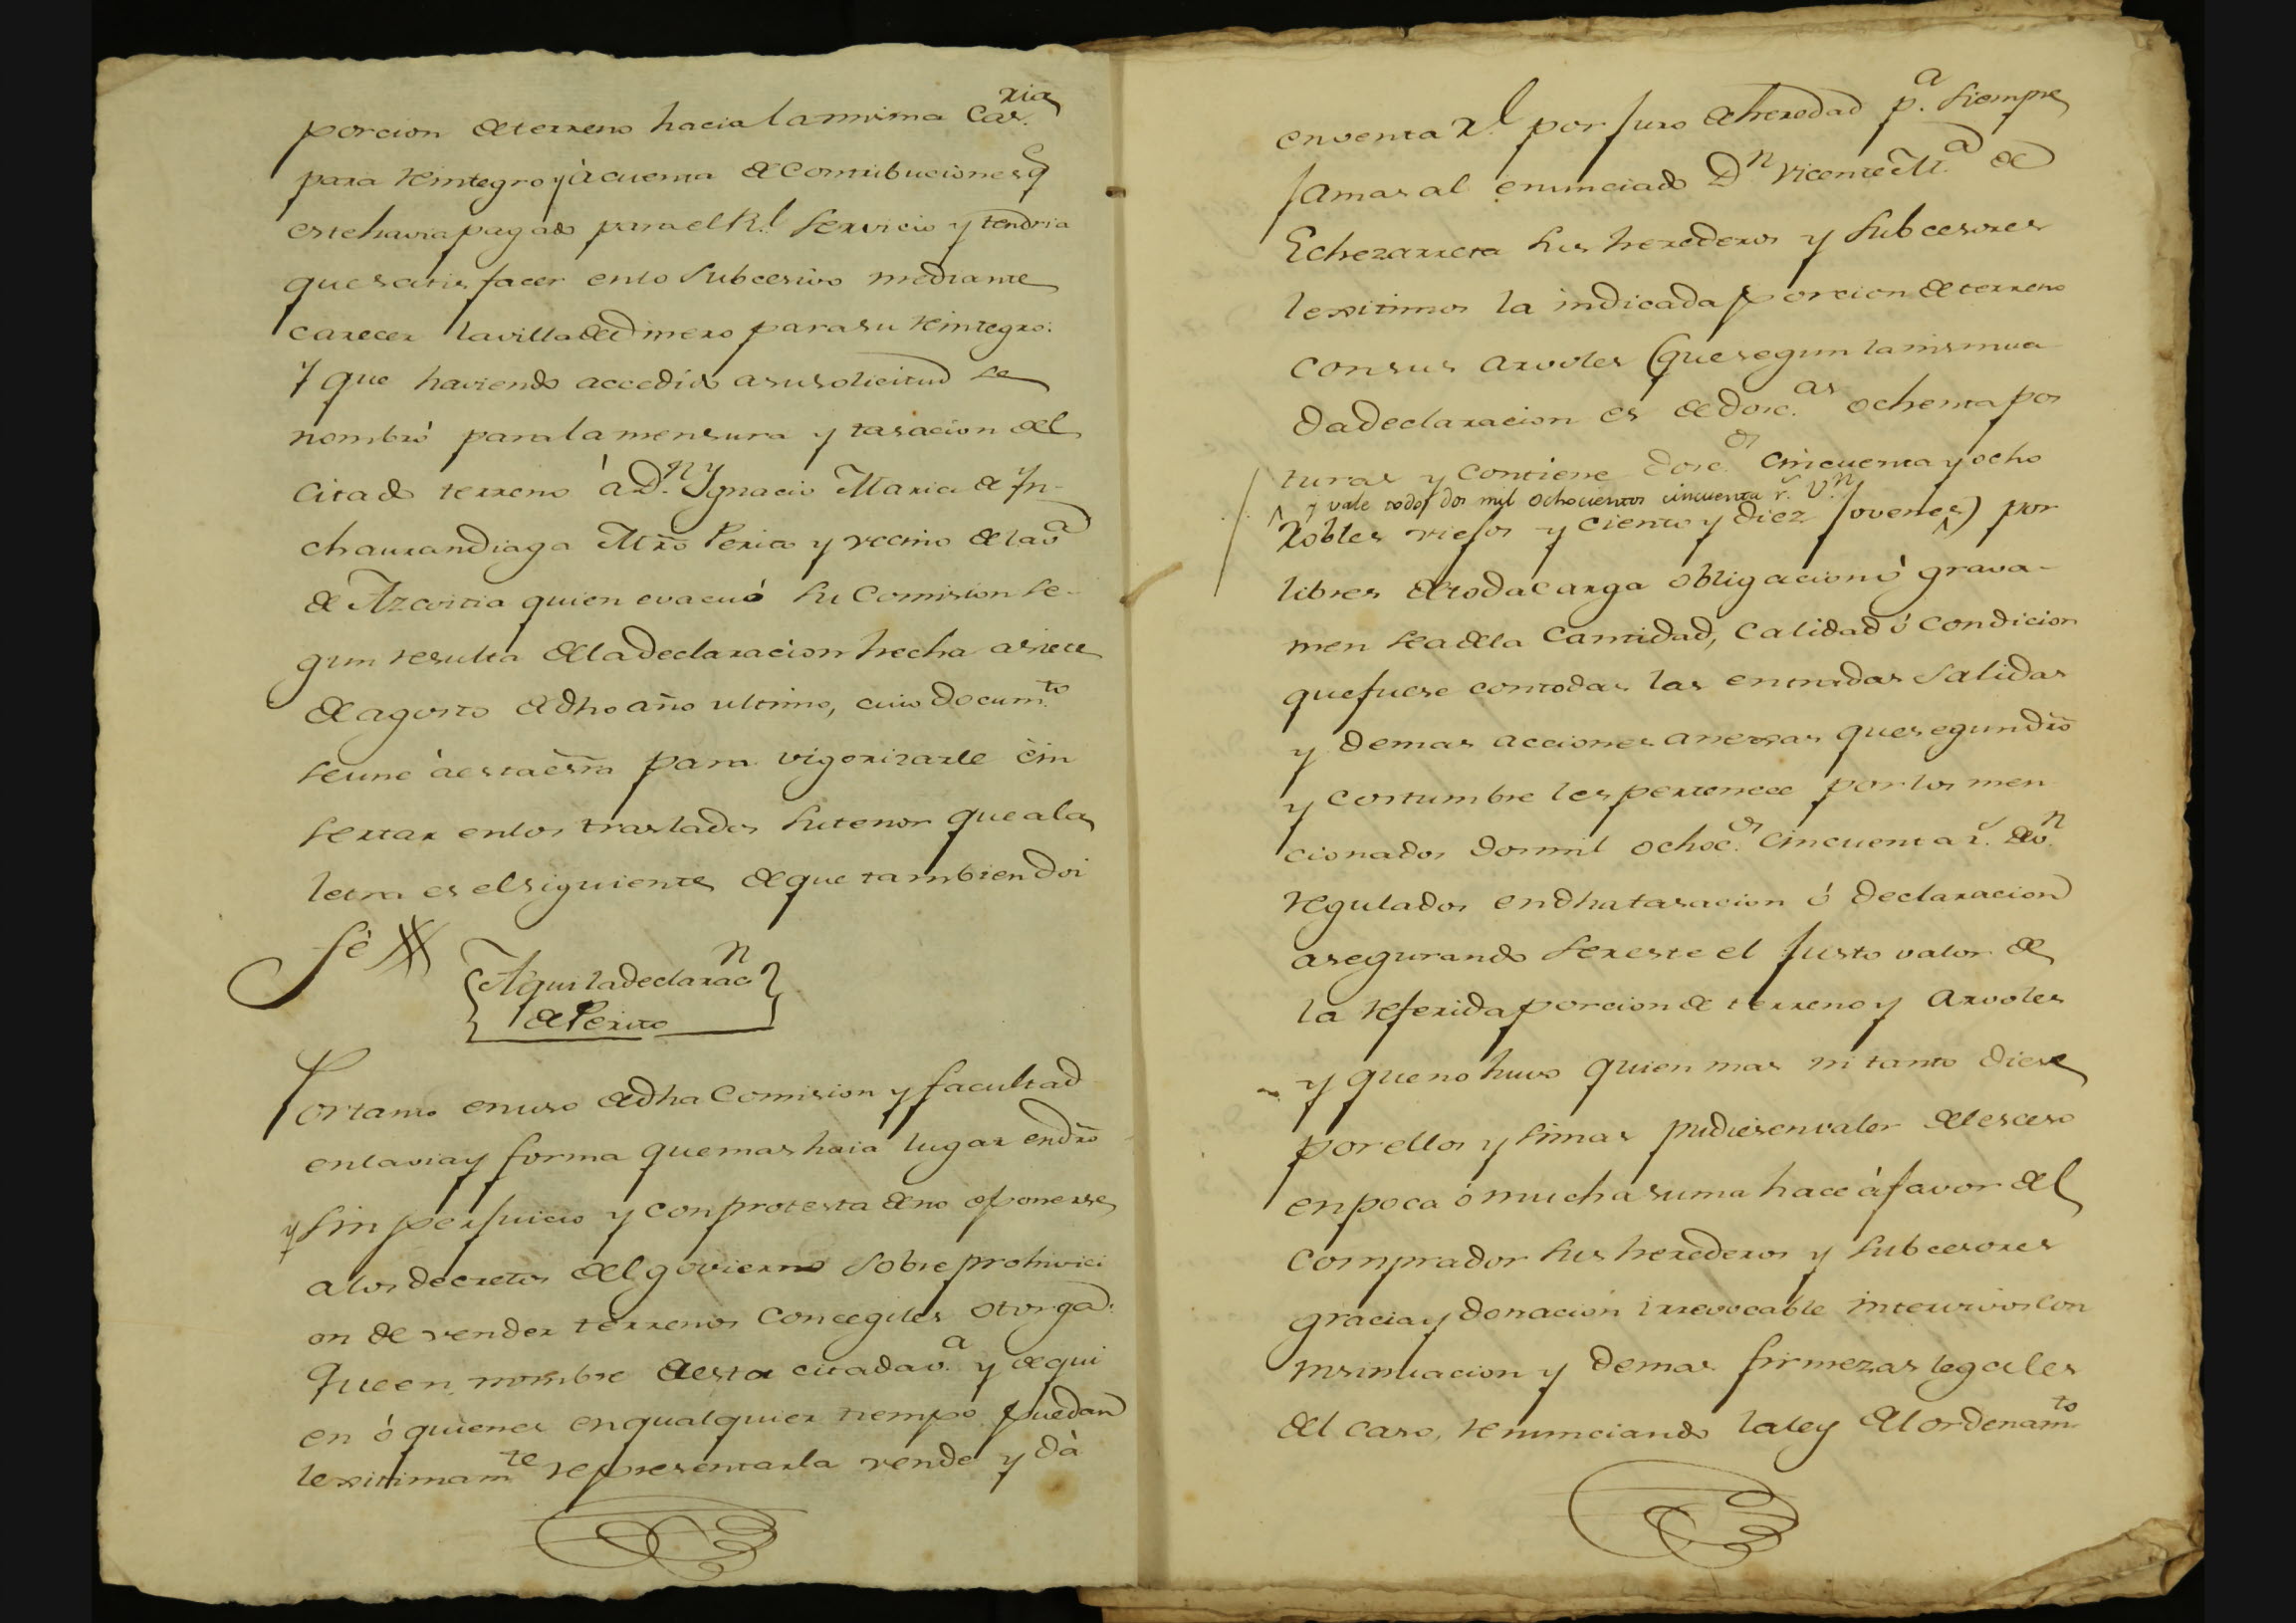 porcion de terreno hacia la misma Cas.ria
para reintegro y à cuenta de contribuciones q
este havia pagado para el R.l servicio y tendria
que satisfacer en lo subcesivo mediante
carecer la villa de dinero para su reintegro:
Y que haviendo accedido a su solicitud se
nombró para la mensura y tasacion del
citado terreno á D.n Ygnacio Maria de Yn-
chaurandiaga Mro Perito y vecino de la v.a
de Azcoitia quien evacuó su comision se-
gun resulta de la declaracion hecha a siete
de agosto de dho año ultimo, cuio docum.to
se une á esta esrra para vigorizarle é in
sertar en los traslados su tenor que a la
letra es el siguiente de que tambien doi
fé
Aqui la declarac.n
de Perito
Por tanto en uso de dha Comision y facultad
en la via y forma que mas haia lugar en dro
y sin perjuicio y con protesta de no oponerse
a los decretos del govierno sobre prohivici
on de vender terrenos concegiles otorga:
Que en nombre de esta citada v.a y de qui
en ó quienes en qualquier tiempo puedan
lexitimam.te representarla vende y dà
en venta R.l por juro de heredad p.a siempre
jamas al enunciado D.n Vicente M.a de
Echezarreta sus herederos y subcesores
lexitimos la indicada porcion de terreno
con sus arvoles (que segun la misma
da declaracion es de dosc.as ochenta pos
turas y contiene dosc.os cincuenta y ocho
y vale todo dos mil ochocientos cincuenta r.s v.n
Robles viejos y ciento y diez jovenes) por
libres de toda carga obligacion ó grava-
men sea de la cantidad, calidad ó condicion
que fuese con todas las entradas salidas
y demas acciones anexas que segun dro
y costumbre les pertenece por los men
cionados dos mil ochoc.os cincuenta r.s de v.n
regulados en dha tasacion ó declaracion
asegurando ser este el justo valor de
la referida porcion de terreno y arvoles
y que no huvo quien mas ni tanto diese
por ellos y si mas pudiesen valer del esceso
en poca ó mucha suma hace á favor del
comprador sus herederos y subcesores
gracia y donacion irrevocable intervivos con
insinuacion y demas firmezas legales
del caso, renunciando la ley del ordenam.to